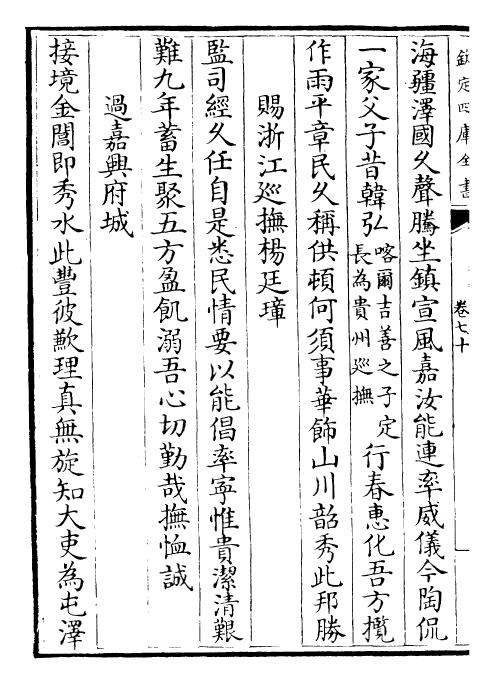 欽定四庫全書
卷七十
海疆澤國久聲騰坐鎮宣風嘉汝能連率威儀今陶侃
一家父子昔韓弘喀爾吉善之子定長為貴州巡撫行春惠化吾方攬
作雨平章民久稱供頓何須事華飾山川韶秀此邦勝
賜浙江巡撫楊廷璋
監司經久任自是悉民情要以能倡率寧惟貴潔清艱
難九年蓄生聚五方盈飢溺吾心切勤哉撫恤誠
過嘉興府城
接境金閶即秀水此豐彼歉理真無旋知大吏為屯澤